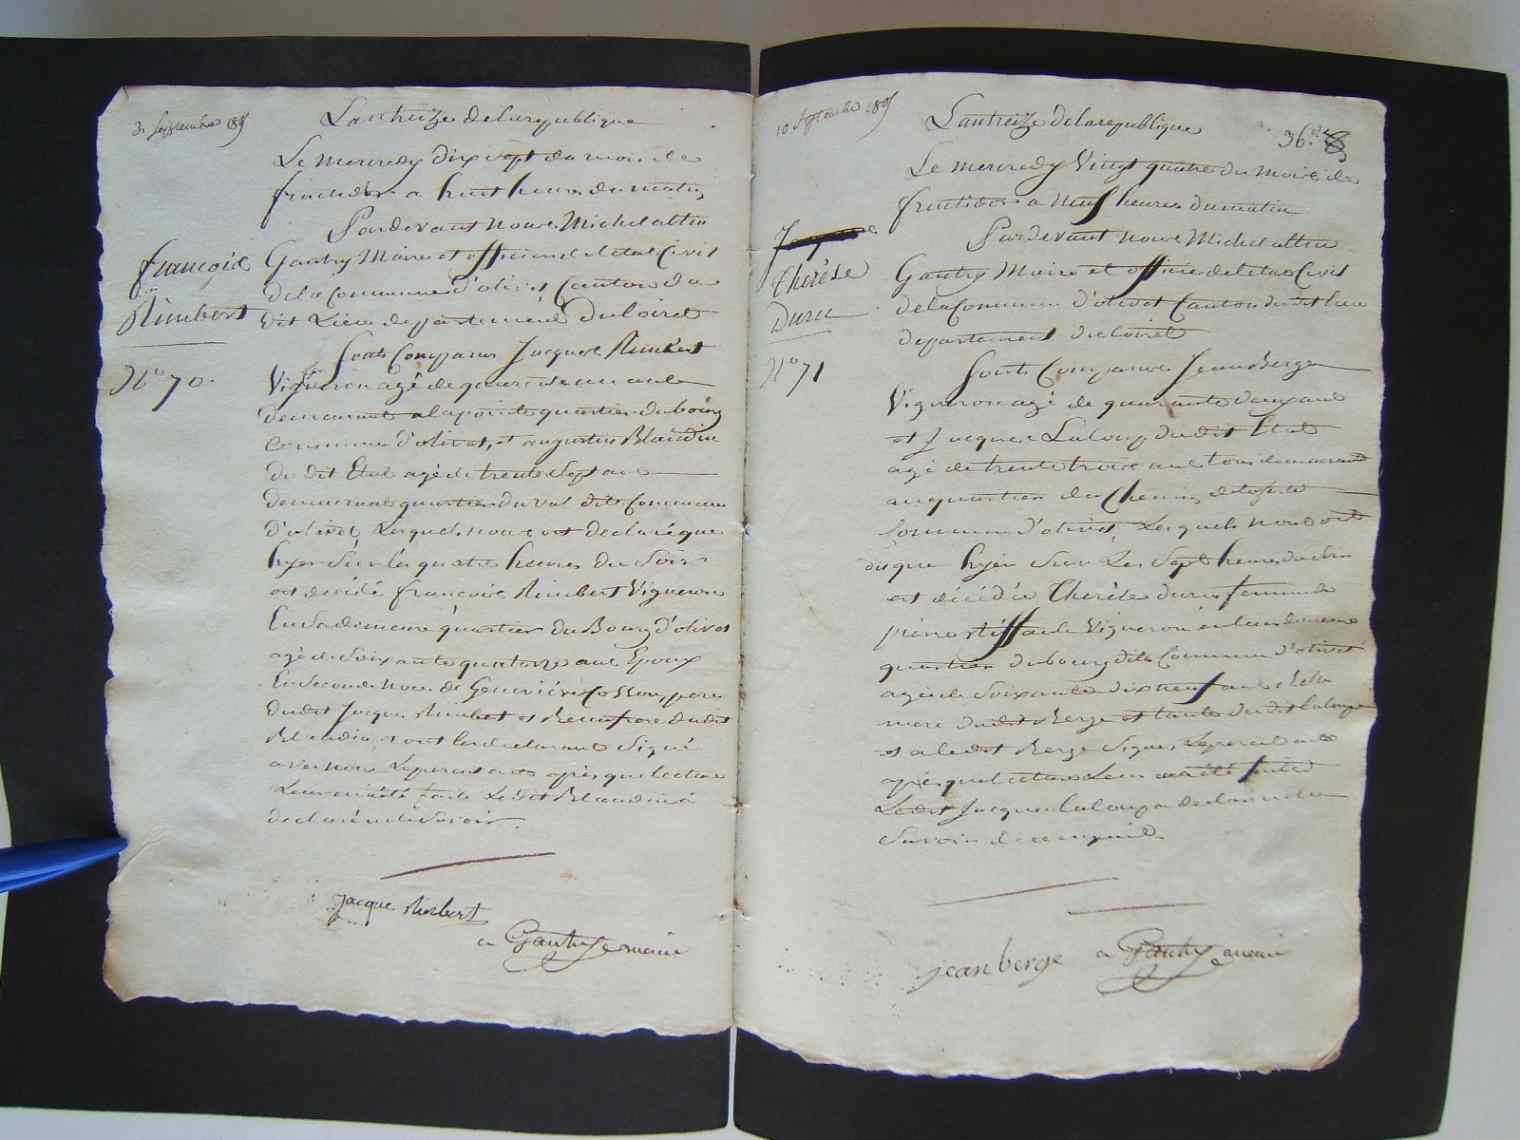 Septembre 1805
L'an treize de la republique
Le mercredy dix sept du mois de
fructidor a huit heures du matin
Pardevant nous Michel altin
françois
Rimbert
N° 70.
Gautry Maire et officier de l'état Civil
de la Commune d'olivet Canton du
dit Lieu departement du loiret
Sont Comparus Jacques Rimbert
Vigneron agé de quarante un ans
demeurant a la pointe quartier du bourg
Commune d'olivet, et augustin Blandin
du dit Etat agé de trente sept ans
demeurant quartier du val dite Commune
d'olivet, Lesquels nous ont declaré que
hyer Sur les quatre heures du Soir
est décédé françois Rimbert Vigneron
En Sa demeure quartier du Bourg d'olivet
agé de Soixante quatorze ans Epoux
En Seconde Noce de Geneviève Cosson, pere
du dit Jacques Rimbert et Beaufrere du dit
Blandin, et ont les declarants Signé
avec nous Le present acte après que lecture
Leur en a été faite Le dit Blandin a
declaré ne le Savoir.
Jacque Rimbert
Gautry maire
10 Septembre 1805
L'an treize de la republique
36.
Le mercredy Vingt quatre du mois de
fructidor a Neuf heures du matin
Pardevant nous Michel altin
Thérèse
Duru
N° 71
Gautry Maire et officier de l'état Civil
de la Commune d'olivet Canton du dit lieu
departement du loiret
Sont Comparus Jean Berge
Vigneron agé de quarante deux ans
et Jacques Laloup du dit Etat
agé de trente trois ans tous demeurant
au quartier du Chemin de
Commune d'olivet, Lesquels nous ont
dis que hyer Sur Les Sept heures du Soir
est décédée Therèse Duru femme de
pierre Vigneron en leur demeure
quartier du bourg dite Commune d'olivet
agée de Soixante dix neuf ans Belle
mere du dit Berge et tante du dit Laloup
et a le dit Berge Signé Le present acte
après que lecture Leur en a été faite
Le dit Jacques Laloup a declaré ne le
Savoir de ce enquis.
jean berge
Gautry maire